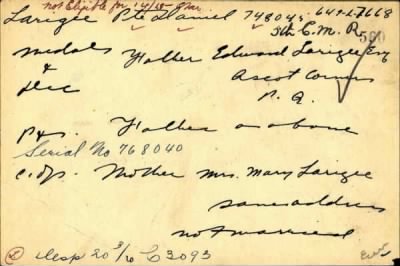 not Eligible for 14/15 Star
Larigee Pte Daniel 748040 649-L-7668
5th C.M.R. 560
medals Father Edward Larigee Esq
& Ascot Corner
Dec P.Q.
P&S. Father as above
Serial No 768040
C. of S. Mother Mrs. Mary Larigee
same address
not married
Desp 20 3/20 C3093